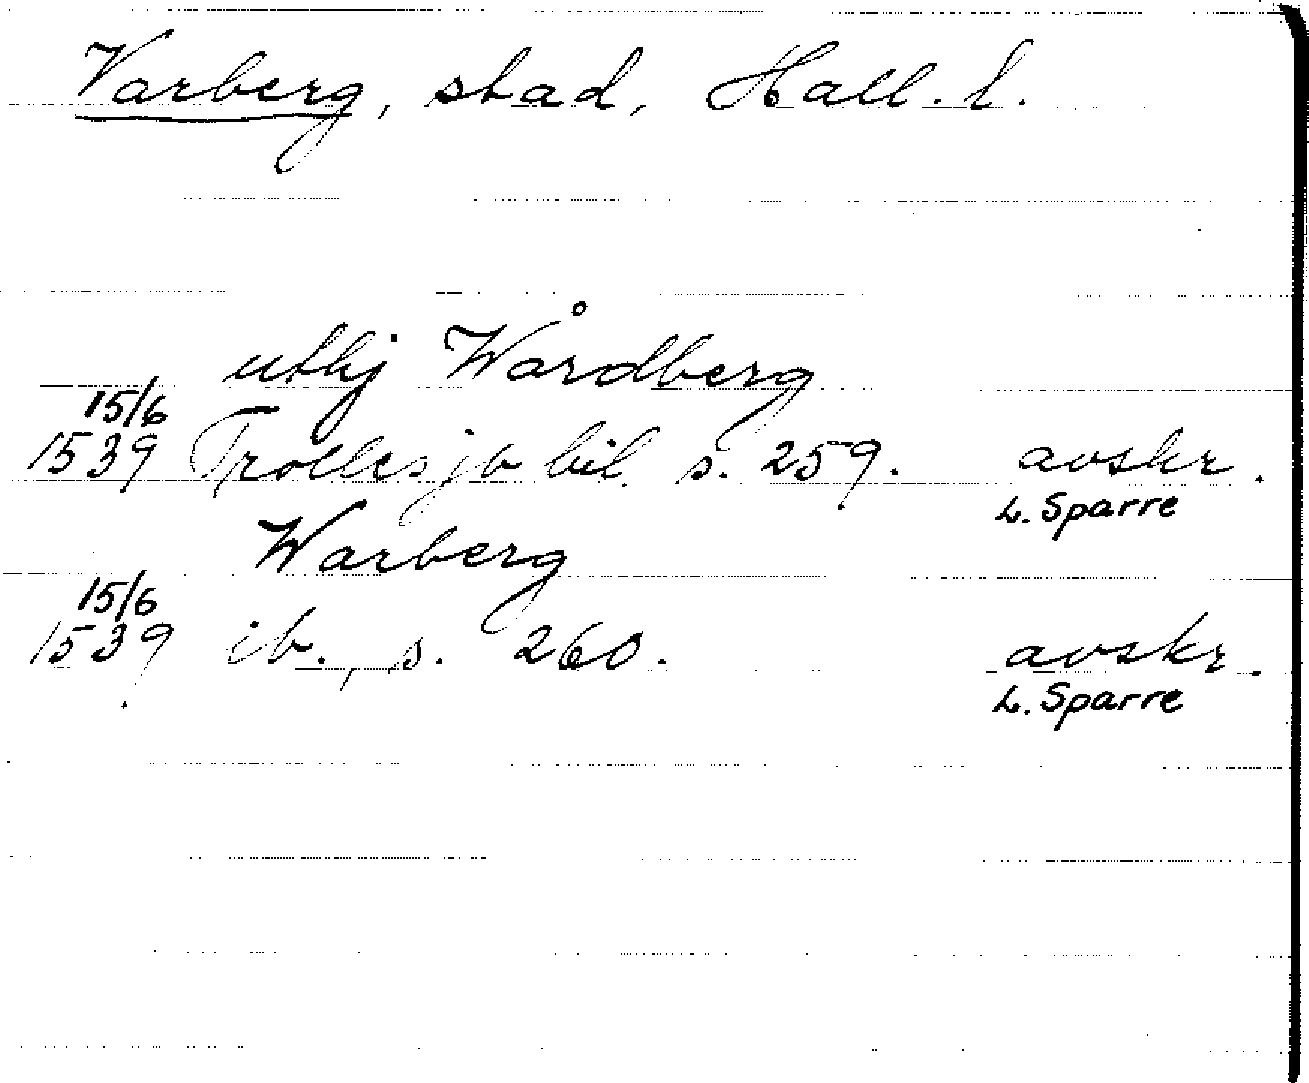 Varberg, stad, Hall. l.
uthj Wårdberg
15/6
1539 Trolles jb bil. s. 259. avskr.
L. Sparre
Warberg
15/6
1539 ib., s. 260. avskr.
L. Sparre